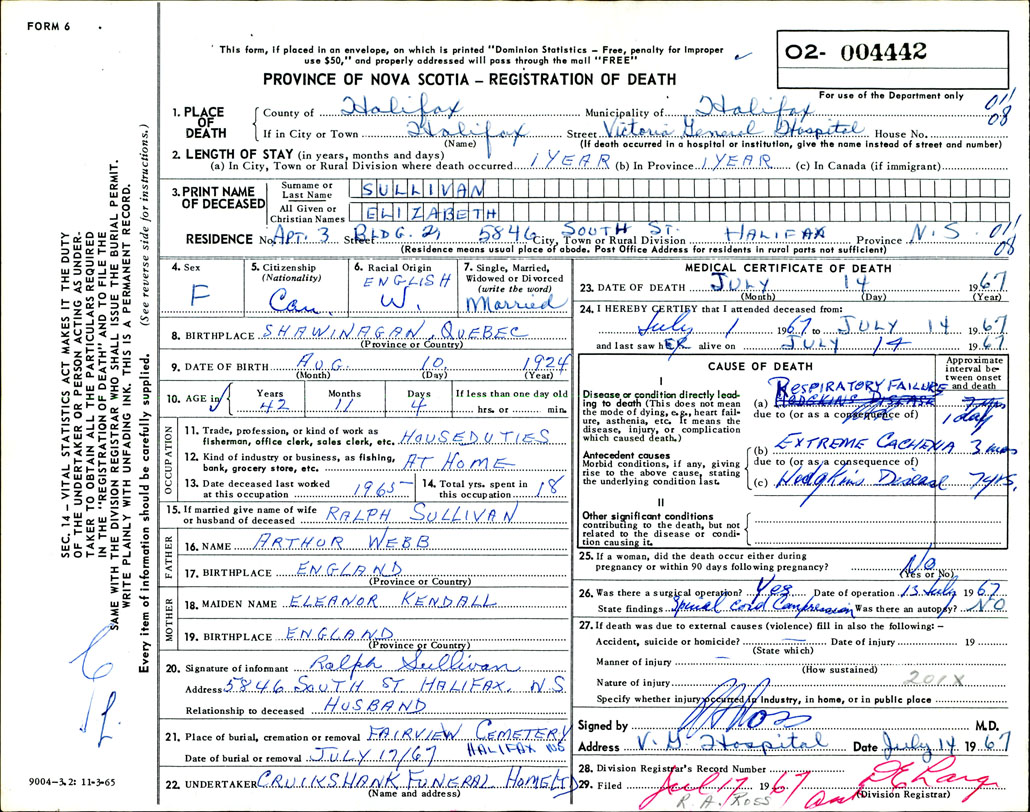 FORM 6
This form, if placed in an envelope, on which is printed "Dominion Statistics – Free, penalty for improper
use $50," and properly addressed will pass through the mail "FREE"
PROVINCE OF NOVA SCOTIA – REGISTRATION OF DEATH
02- 004442
For use of the Department only
1. PLACE OF DEATH
County of Halifax Municipality of Halifax 011 08
If in City or Town Halifax Street Victoria General Hospital House No.
(Name) (If death occurred in a hospital or institution, give the name instead of street and number)
2. LENGTH OF STAY (in years, months and days)
(a) In City, Town or Rural Division where death occurred 1 YEAR (b) In Province 1 YEAR (c) In Canada (if immigrant)
3. PRINT NAME OF DECEASED
Surname or Last Name SULLIVAN
All Given or Christian Names ELIZABETH
RESIDENCE No. APT. 3 Street BLDG. 21 5846 SOUTH ST. City, Town or Rural Division HALIFAX Province N.S. 011 08
(Residence means usual place of abode. Post Office Address for residents in rural parts not sufficient)
4. Sex
F
5. Citizenship
(Nationality)
Can.
6. Racial Origin
ENGLISH
W.
7. Single, Married,
Widowed or Divorced
(write the word)
Married
8. BIRTHPLACE SHAWINAGAN, QUEBEC
(Province or Country)
9. DATE OF BIRTH AUG. 10 1924
(Month) (Day) (Year)
10. AGE in Years Months Days If less than one day old
42 11 4 hrs. or min.
OCCUPATION
11. Trade, profession, or kind of work as
fisherman, office clerk, sales clerk, etc. HOUSEDUTIES
12. Kind of industry or business, as fishing,
bank, grocery store, etc. AT HOME
13. Date deceased last worked
at this occupation 1965
14. Total yrs. spent in
this occupation 18
15. If married give name of wife
or husband of deceased RALPH SULLIVAN
FATHER
16. NAME ARTHUR WEBB
17. BIRTHPLACE ENGLAND
(Province or Country)
MOTHER
18. MAIDEN NAME ELEANOR KENDALL
19. BIRTHPLACE ENGLAND
(Province or Country)
20. Signature of informant Ralph Sullivan
Address 5846 SOUTH ST HALIFAX, N S
Relationship to deceased HUSBAND
21. Place of burial, cremation or removal FAIRVIEW CEMETERY
HALIFAX NS
Date of burial or removal JULY 17/67
22. UNDERTAKER CRUIKSHANK FUNERAL HOME LTD
(Name and address)
MEDICAL CERTIFICATE OF DEATH
23. DATE OF DEATH JULY 14 1967
(Month) (Day) (Year)
24. I HEREBY CERTIFY that I attended deceased from:
July 1 1967 to JULY 14 1967
and last saw hER alive on JULY 14 1967
CAUSE OF DEATH
Approximate interval between onset and death
I
Disease or condition directly leading to death (This does not mean
the mode of dying, e.g., heart failure, asthenia, etc. It means the
disease, injury, or complication
which caused death.)
RESPIRATORY FAILURE
(a) HODGKINS DISEASE 7 yrs
due to (or as a consequence of) 1 day
Antecedent causes
Morbid conditions, if any, giving
rise to the above cause, stating
the underlying condition last.
(b) EXTREME CACHEXIA 3 mos
due to (or as a consequence of)
(c) Hodgkins Disease 7 yrs.
II
Other significant conditions
contributing to the death, but not
related to the disease or condition causing it.
25. If a woman, did the death occur either during
pregnancy or within 90 days following pregnancy? No
(Yes or No)
26. Was there a surgical operation? Yes Date of operation 13 July 1967
State findings Spinal cord Compression Was there an autopsy? NO
27. If death was due to external causes (violence) fill in also the following: –
Accident, suicide or homicide? — Date of injury 19
(State which)
Manner of injury —
(How sustained)
Nature of injury 201X
Specify whether injury occurred in industry, in home, or in public place
Signed by Ross M.D.
Address V. G. Hospital Date July 14 1967
28. Division Registrar's Record Number
29. Filed Jul 17 1967
R. A. ROSS
(Division Registrar)
SEC. 14 – VITAL STATISTICS ACT MAKES IT THE DUTY
OF THE UNDERTAKER OR PERSON ACTING AS UNDER-
TAKER TO OBTAIN ALL THE PARTICULARS REQUIRED
IN THE "REGISTRATION OF DEATH" AND TO FILE THE
SAME WITH THE DIVISION REGISTRAR WHO SHALL ISSUE THE BURIAL PERMIT.
WRITE PLAINLY WITH UNFADING INK. THIS IS A PERMANENT RECORD.
Every item of information should be carefully supplied. (See reverse side for instructions.)
9004-3.2: 11-3-65